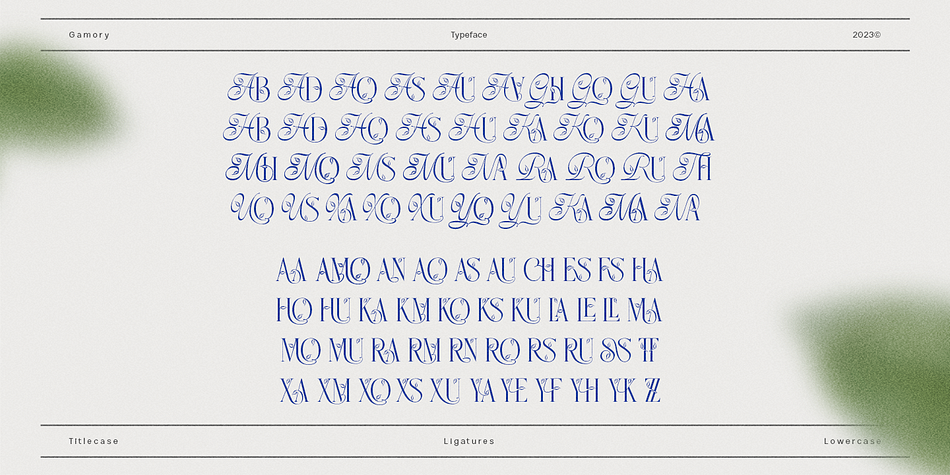 Gamory Typeface 2023©
AB AD AO AS AU AV GH GO GU HA
HB HD HO HS HU KA KO KU MA
MH MO MS MU NA RA RO RU TH
UO US XA XO XU YO YU KA MA NA
AA AMO AN AO AS AU CH ES FS HA
HO HU KA KM KO KS KU LA LE LL MA
MO MU RA RM RN RO RS RU SS TF
XA XM XO XS XU YA YE YF YH YK
Titlecase Ligatures Lowercase